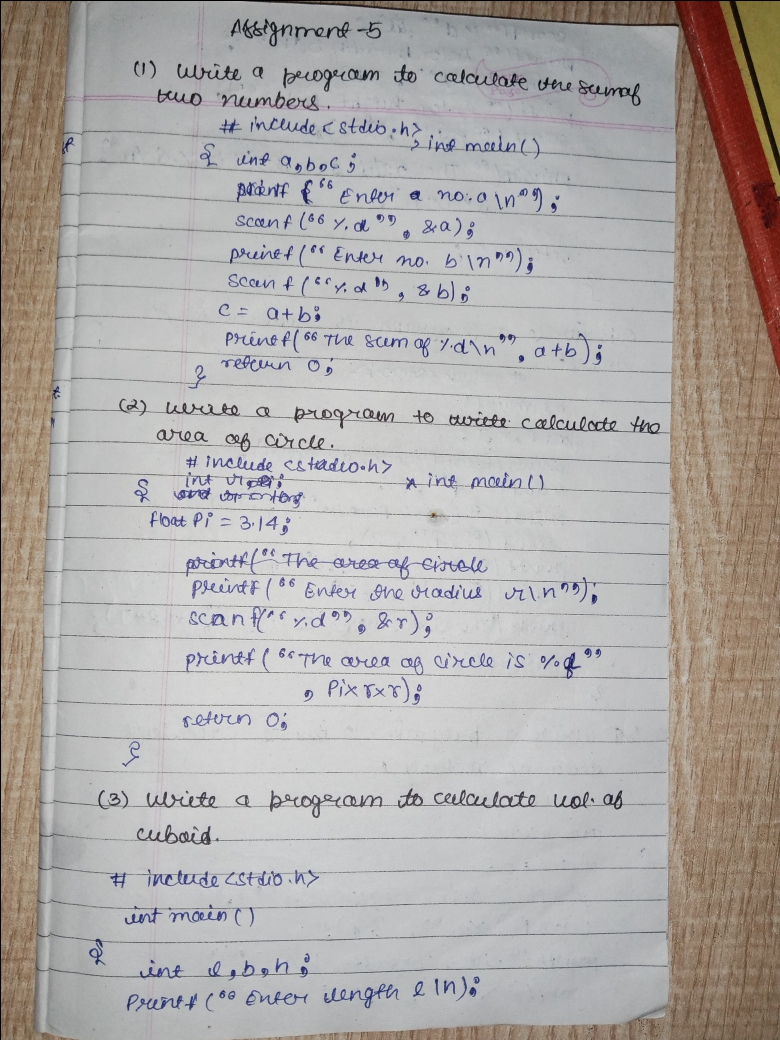 Assignment-5
(1) Write a program to calculate the sum of
two numbers.
# include <stdio.h>, int main()
{ int a,b,c;
printf (“Enter a no. a \n”);
scanf (“%d”, &a);
printf (“Enter no. b \n”);
scanf (“%d”, &b);
c = a+b;
printf (“The sum of %d\n”, a+b);
return 0;
}
(2) write a program to write calculate the
area of circle.
# include <stadio.h>
int main()
{
float Pi = 3.14;
printf(“The area of circle
printf (“Enter the radius r\n”);
scanf(“%d”, &r);
printf (“The area of circle is %f”
, Pi×r×r);
return 0;
}
(3) Write a program to calculate vol. of
cuboid.
# include <stdio.h>
int main()
{
int l,b,h;
Printf (“Enter length l \n);